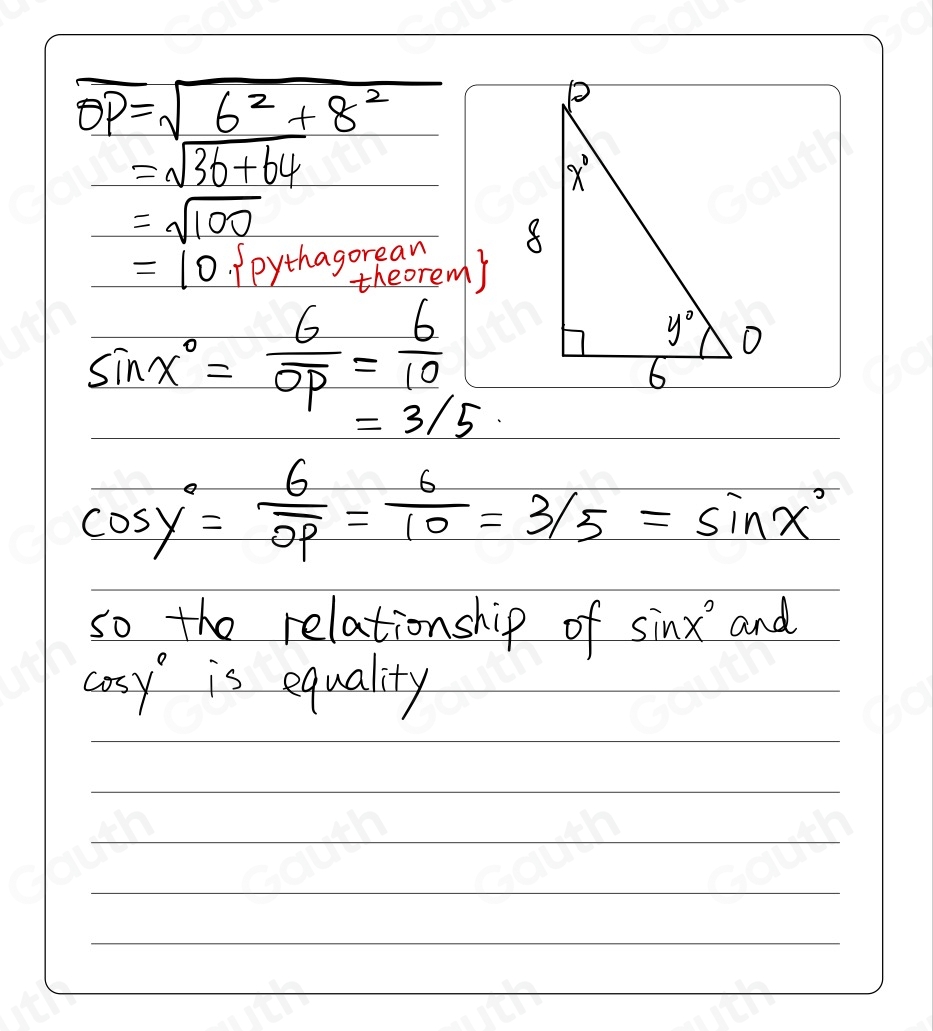 OP = √6² + 8²
= √36+64
= √100
= 10. {pythagorean
theorem}
sinx° = 6/OP = 6/10
= 3/5.
P
x°
8
y°
O
6
cosy° = 6/OP = 6/10 = 3/5 = sinx°
so the relationship of sinx° and
cosy° is equality